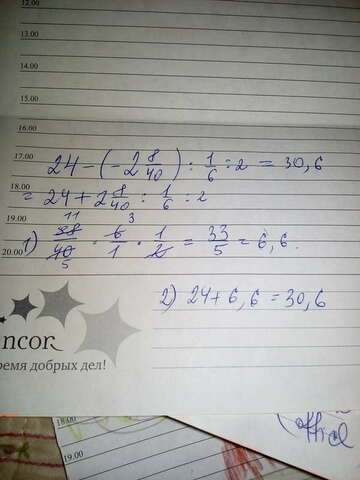 12.00
13.00
14.00
15.00
16.00
17.00 24 - (-2 8/40) : 1/6 : 2 = 30,6
18.00 = 24 + 2 8/40 : 1/6 : 2
19.00 11 3
20.00 1) 88/40 · 6/1 · 1/2 = 33/5 = 6,6.
5
2) 24 + 6,6 = 30,6
ncor
ремя добрых дел!
18.00
19.00